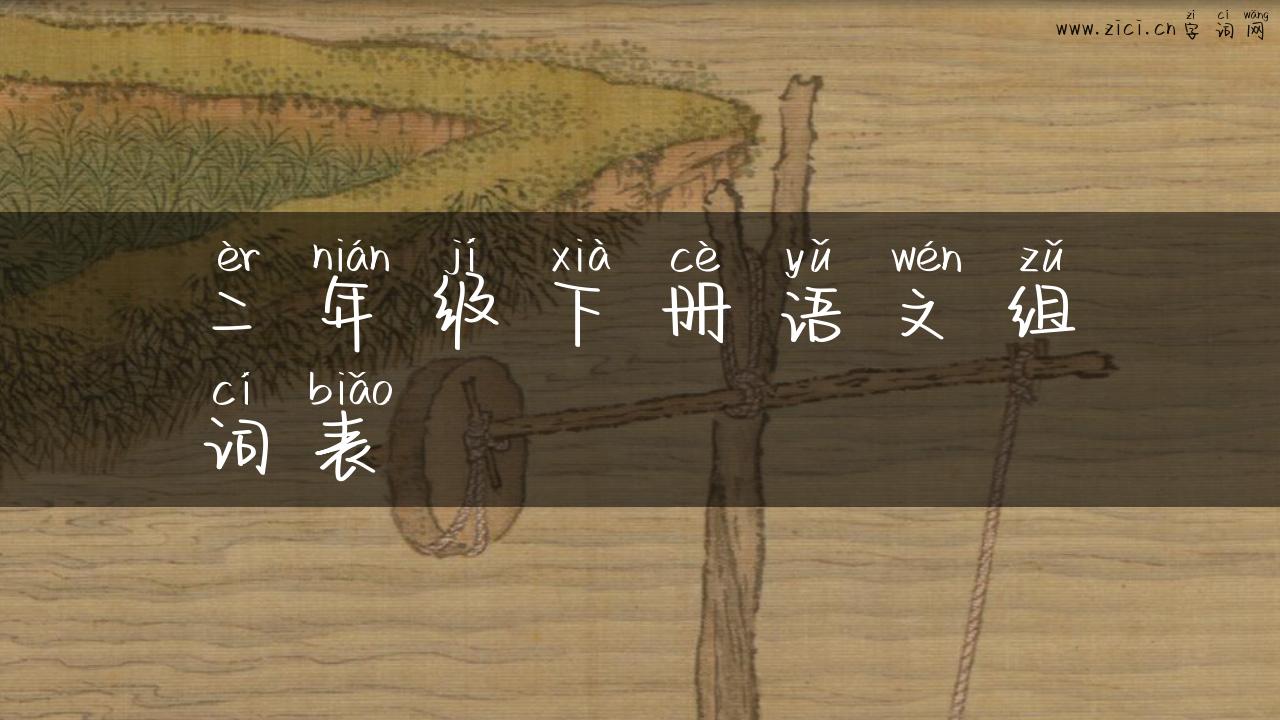 zì cí wǎng
www.zici.cn 字词网
èr nián jí xià cè yǔ wén zǔ
二年级下册语文组
cí biǎo
词表